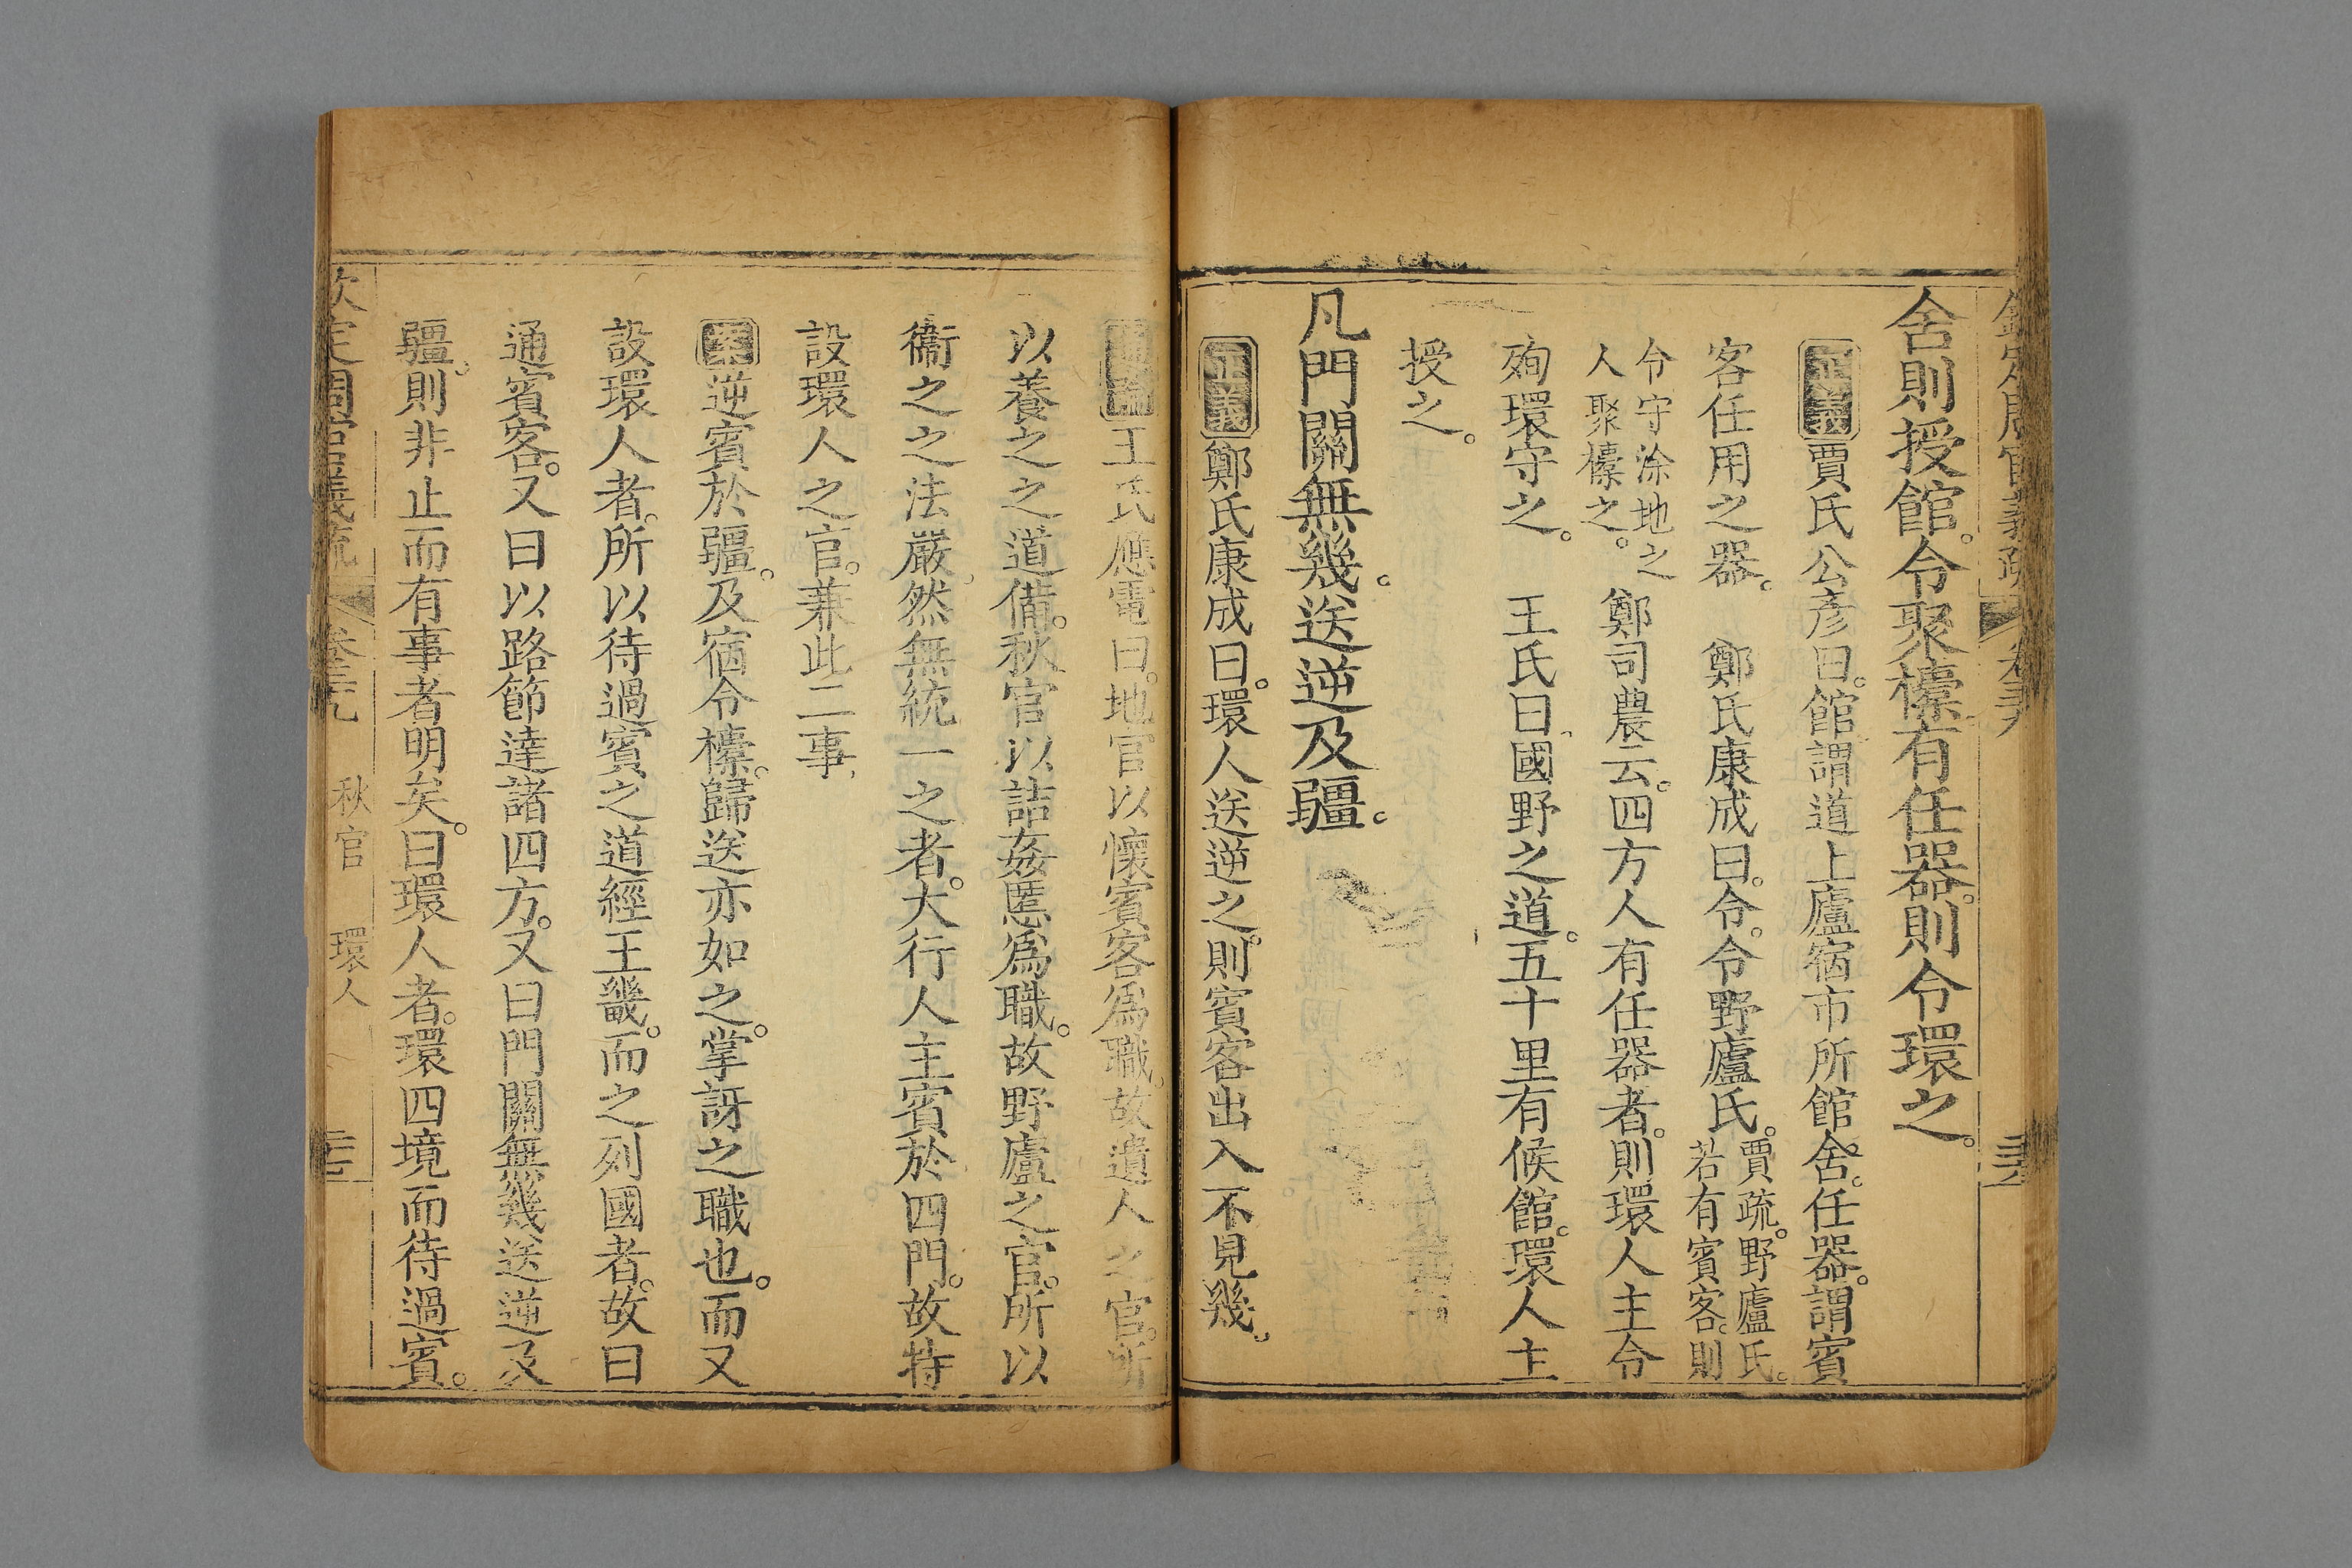 舍則授館。令聚㯓。有任器。則令環之。
正義賈氏公彥曰。館謂道上廬宿市所館舍。任器。謂賓
客任用之器。 鄭氏康成曰。令。令野廬氏。賈疏。野廬氏。
若有賓客。則
令守涂地之
人聚㯓之。 鄭司農云。四方人有任器者。則環人主令
殉環守之。 王氏曰。國野之道。五十里有候館。環人主
授之。
凡門關無幾。送逆及疆。
正義鄭氏康成曰。環人送逆之。則賓客出入不見幾。
通論王氏應電曰。地官以懷賓客爲職。故遺人之官。所
以養之之道備。秋官以詰姦慝爲職。故野廬之官。所以
衞之之法嚴。然無統一之者。大行人主賓於四門。故特
設環人之官。兼此二事
案逆賓於疆。及宿令㯓。歸送亦如之。掌訝之職也。而又
設環人者。所以待過賓之道經王畿。而之列國者。故曰
通賓客。又曰以路節達諸四方。又曰門關無幾送逆及
疆。則非止而有事者明矣。曰環人者。環四境而待過賓。
欽定周官義疏 卷三十九 秋官 環人